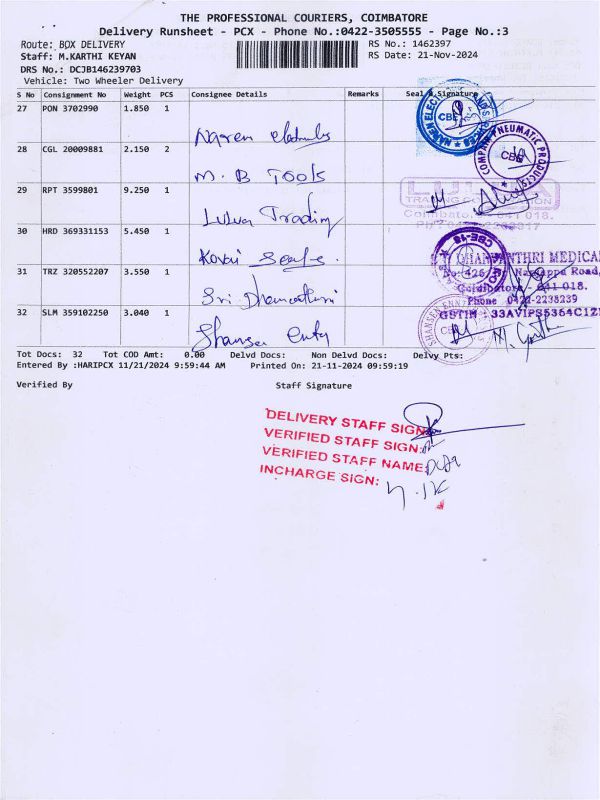 THE PROFESSIONAL COURIERS, COIMBATORE
Delivery Runsheet - PCX - Phone No.:0422-3505555 - Page No.:3
Route: BOX DELIVERY
RS No.: 1462397
Staff: M.KARTHI KEYAN
RS Date: 21-Nov-2024
DRS No.: DCJB146239703
Vehicle: Two Wheeler Delivery
S No Consignment No Weight PCS Consignee Details Remarks Seal & Signature
27 PON 3702990 1.850 1
28 CGL 20009881 2.150 2 M. B Tools
29 RPT 3599801 9.250 1 Lulva Trading
30 HRD 369331153 5.450 1 Kovai
31 TRZ 320552207 3.550 1 Sri
32 SLM 359102250 3.040 1 Shansen
CBE
COMPAN PNEUMATIC PRODUCTS
CBE
TRADING
Coimbatore - 641 018.
CBE-18
DHANVANTHRI MEDICAL
Road,
Coimbatore - 641 018.
Phone 0422-2238239
GSTIN 33AVIPS5364C1Z
Tot Docs: 32 Tot COD Amt: 0.00 Delvd Docs: Non Delvd Docs: Delvy Pts:
Entered By :HARIPCX 11/21/2024 9:59:44 AM Printed On: 21-11-2024 09:59:19
Verified By Staff Signature
DELIVERY STAFF SIGN
VERIFIED STAFF SIGN:
VERIFIED STAFF NAME:
INCHARGE SIGN: